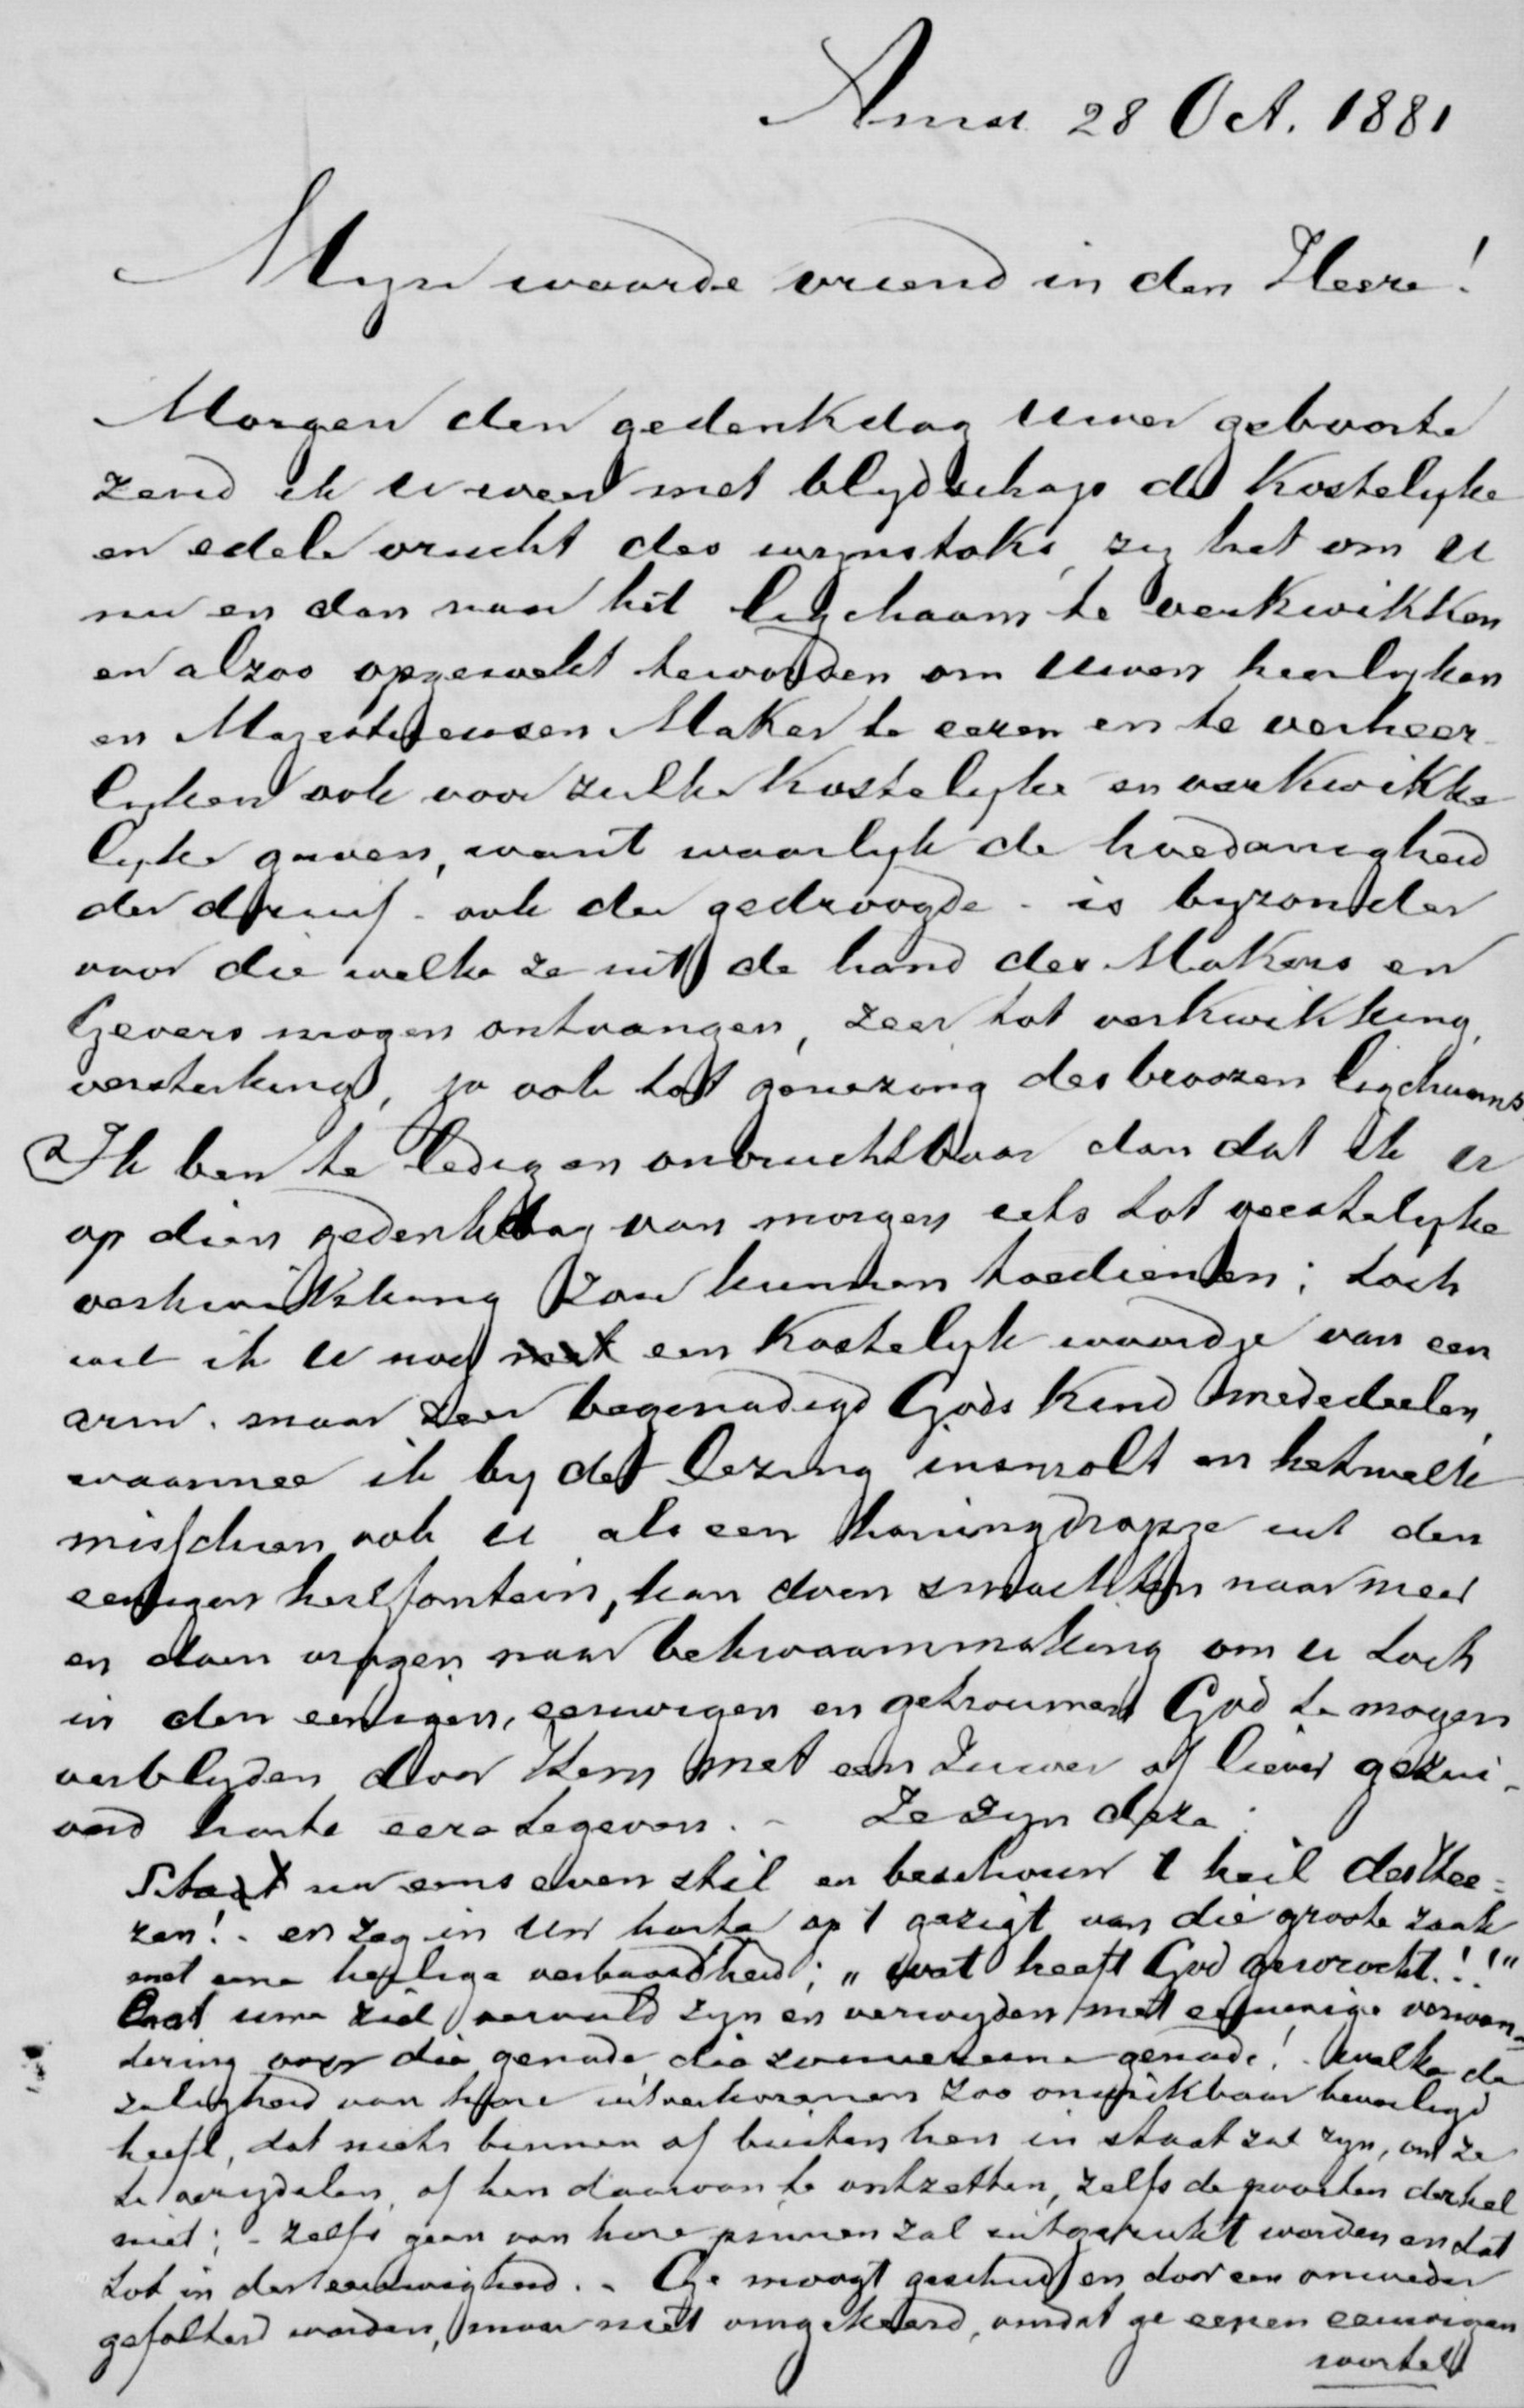 Amst. 28 Oct. 1881
Mijn waarde vriend in den Heere!
Morgen den gedenkdag uwer geboorte
zend ik u even met blydschap de kostelyke
en edele vrucht des wynstoks, zy het om u
nu en dan naar het ligchaam te verkwikken
en alzoo opgewekt te worden om uwen heerlyken
en Majestueusen Maker te eeren en te verheer-
lyken ook voor zulke kostelyke en verkwikke
lyke gaven, want waarlyk de hoedanigheid
der druif - ook der gedroogde - is byzonder
voor die welke ze uit de hand des Makers en
Gevers mogen ontvangen, zeer tot verkwikking,
versterking, ja ook tot genezing des broozen ligchaams.
Ik ben te ledig en onvruchtbaar dan dat ik u
op dien gedenkdag van morgen iets tot geestelyke
verkwikking zou kunnen toedienen; toch
wil ik u nog een kostelyk woordje van een
arm. maar zeer begenadigd Gods kind mededeelen,
waarmee ik by de lezing insmolt en hetwelk
misschien ook u als een honingdropje uit den
eenigen heilfontein, kan doen smachten naar meer
en doen vragen naar bekwaammaking om u toch
in den eenigen, eeuwigen en getrouwen God te mogen
verblyden door Hem met een zuiver of liever gezui-
verd harte eere te geven. - Ze zyn deze:
Sta nu eens even stil en beschouw 't heil des Hee=
ren! - en zeg in uw harte op 't gezigt van die groote zaak
met eene heilige verbaasdheid; „wat heeft God gewrocht!!"
Laat uwe ziel vervuld zyn en verwyden met eeuwige verwon=
dering over die genade die souvereine genade! - welke de
zaligheid van hare uitverkorenen zoo onwrikbaar beveiligd
heeft, dat niets binnen of buiten hen in staat zal zyn, om ze
te verydelen, of hen daarvan te ontzetten, zelfs de poorten der hel
niet; - zelfs geen van hare pinnen zal uitgerukt worden en dat
tot in der eeuwigheid. - Ge moogt geschud en door een onweder
gefolterd worden, maar niet omgekeerd, omdat ge eenen eeuwigen
wortel